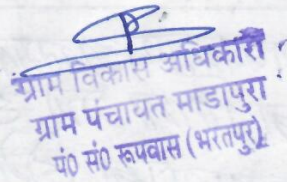 ग्राम विकास अधिकारी
ग्राम पंचायत माडापुरा
पं० सं० रूपवास (भरतपुर)